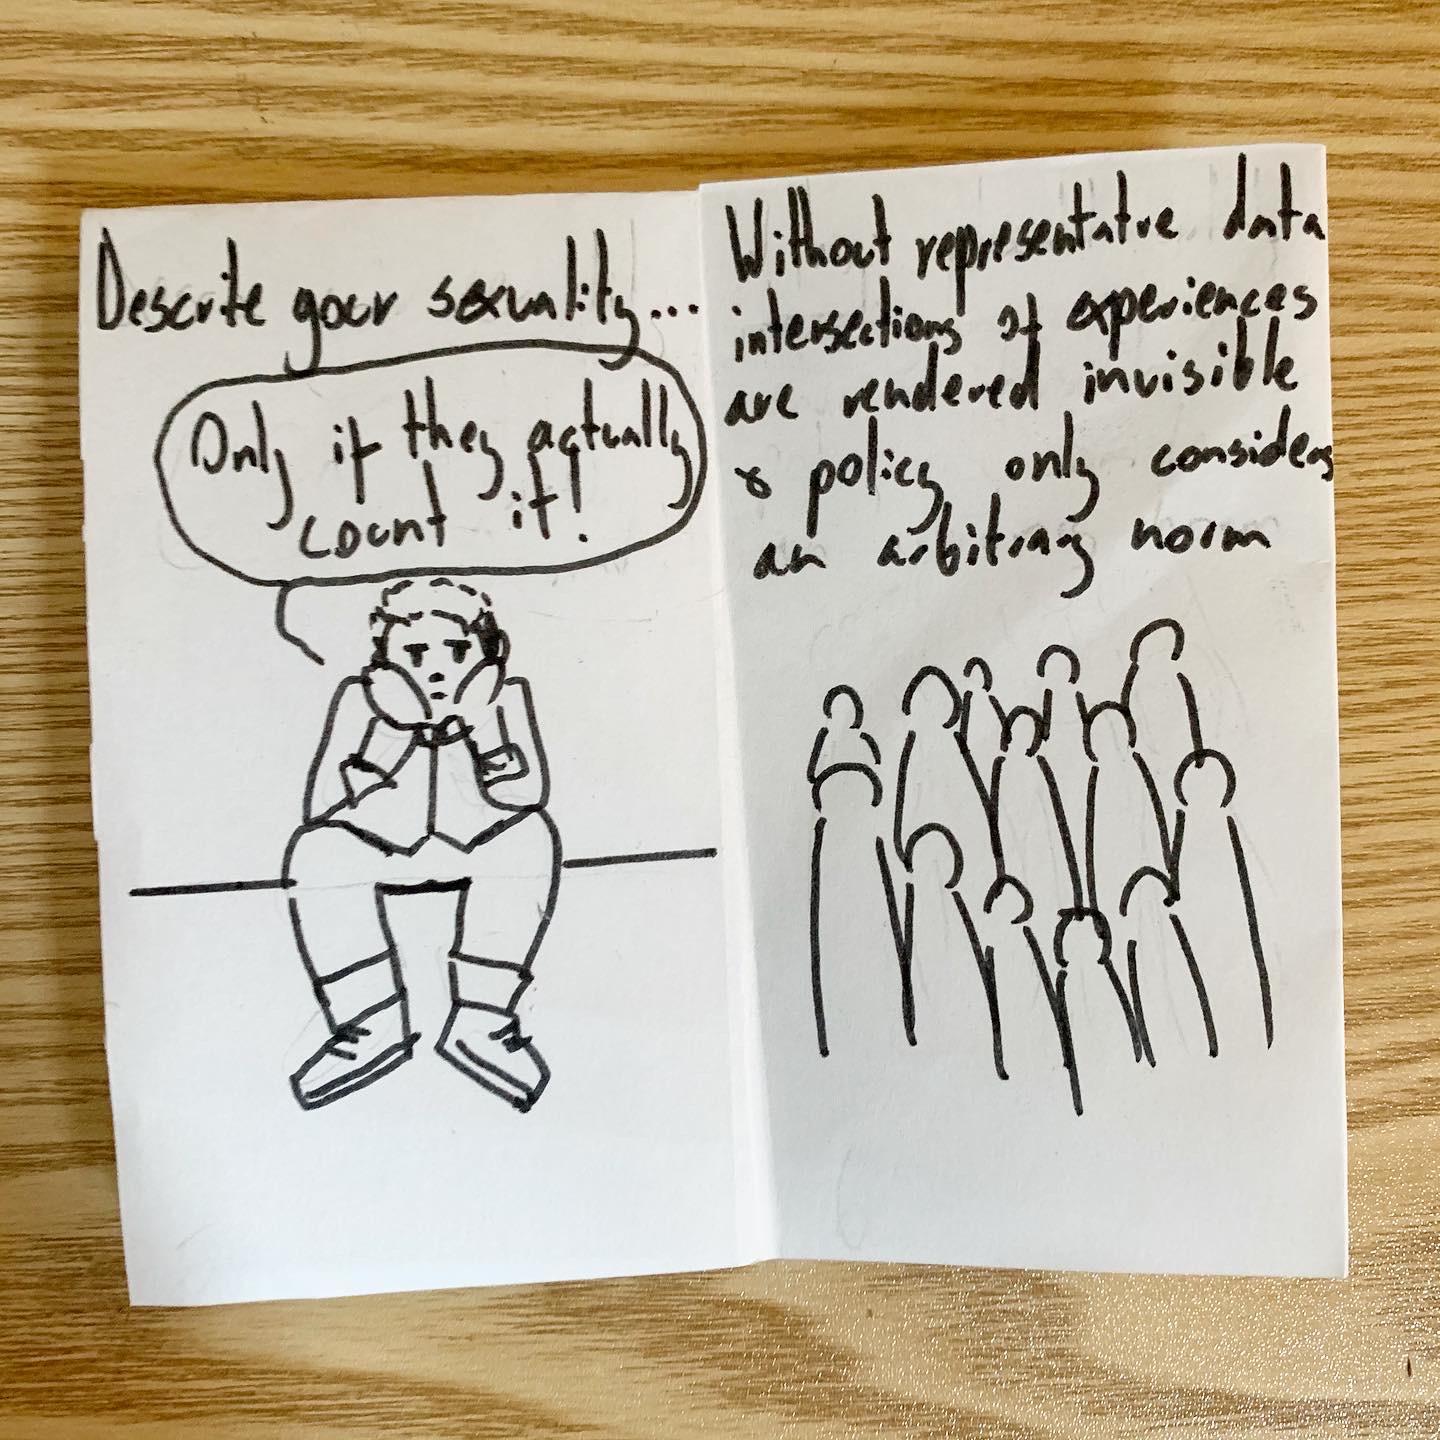 Describe your sexuality...
Only if they actually
count it!
Without representative data
intersections of experiences
are rendered invisible
& policy only considers
an arbitrary norm